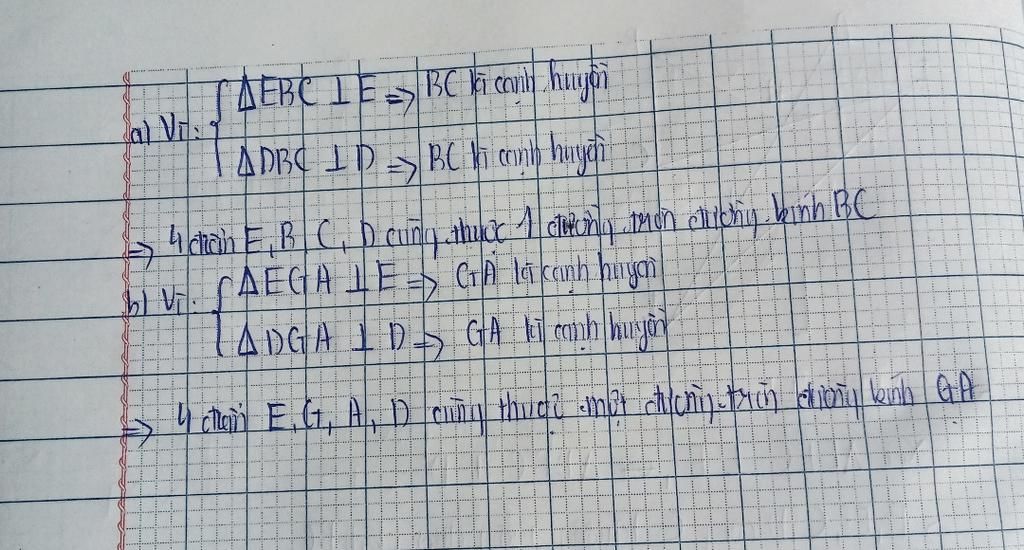 a) Vì: { ΔEBC ⊥ E => BC là cạnh huyền
ΔDBC ⊥ D => BC là cạnh huyền
=> 4 điểm E, B, C, D cùng thuộc 1 đường tròn đường kính BC
b) Vì: { ΔEGA ⊥ E => GA là cạnh huyền
ΔDGA ⊥ D => GA là cạnh huyền
=> 4 điểm E, G, A, D cùng thuộc một đường tròn đường kính GA